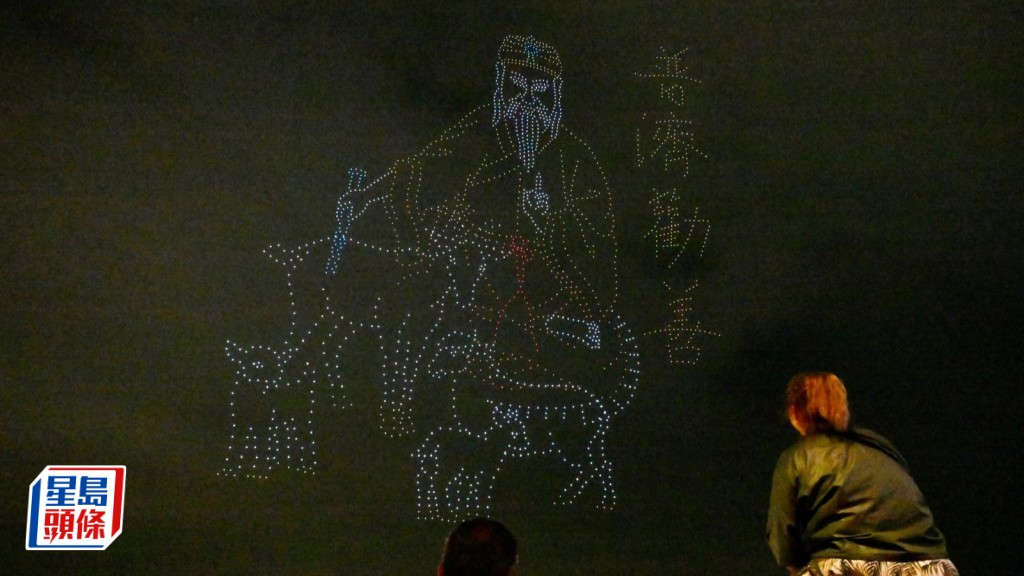 普濟勸善
星島
頭條